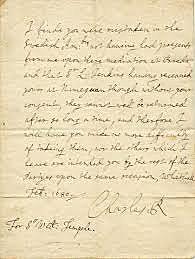 I finde you were mistaken in the
 not having had presents
from me upon the mediation at Breda
and that Sr L. Jenkins having received
yours at Nimeguen though without your
consent, they cannot well be returned
after so long a time, and therefore I
will have you make no more difficulty
of taking them, nor the others which I
heare are intended you by the rest of the
 upon the same occasion, Whitehall
Feb: 1680
Charles R
For Sr Will: Temple.